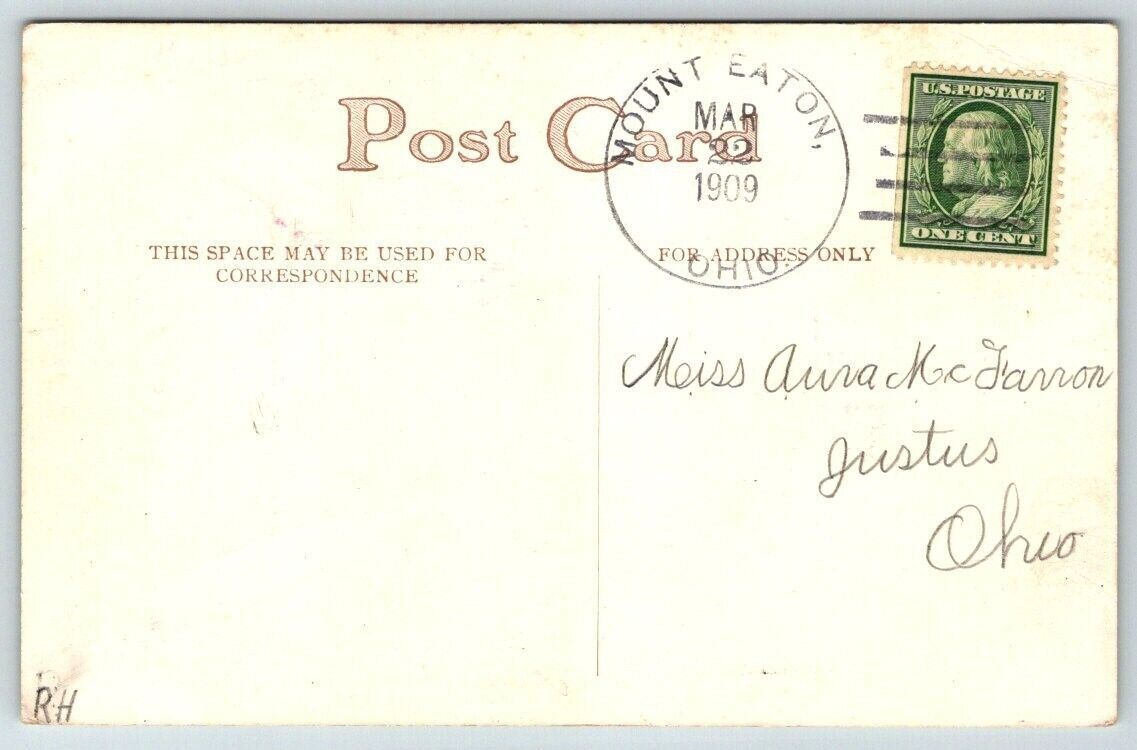 Post Card
MOUNT EATON,
MAR
22
1909
OHIO.
U.S. POSTAGE
ONE CENT
THIS SPACE MAY BE USED FOR
CORRESPONDENCE
FOR ADDRESS ONLY
Meiss Aura McFarron
Justus
Ohio
RH